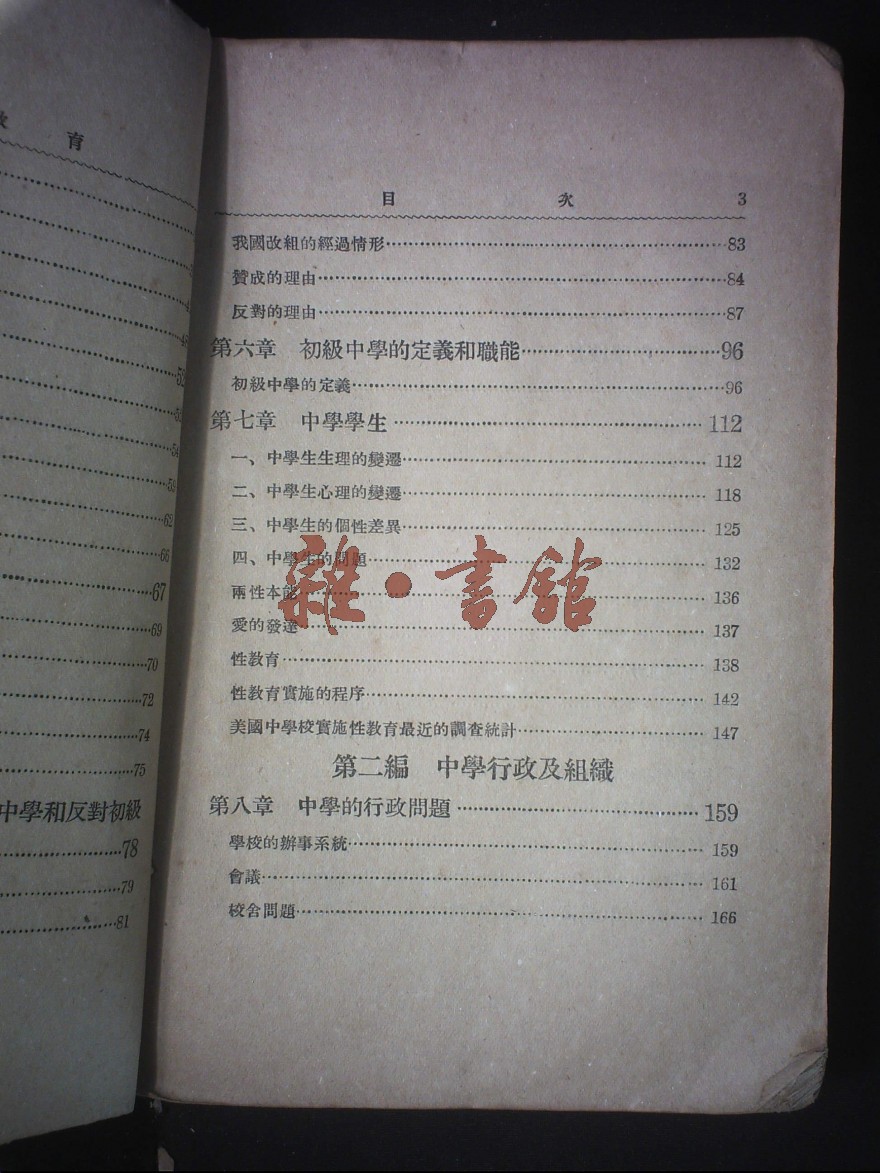 育
48
52
53
54
59
62
66
67
69
70
72
74
75
中學和反對初級
78
79
81
目 次 3
我國改組的經過情形 83
贊成的理由 84
反對的理由 87
第六章 初級中學的定義和職能 96
初級中學的定義 96
第七章 中學學生 112
一、中學生生理的變遷 112
二、中學生心理的變遷 118
三、中學生的個性差異 125
四、中學生的問題 132
兩性本能 136
愛的發達 137
性教育 138
性教育實施的程序 142
美國中學校實施性教育最近的調查統計 147
第二編 中學行政及組織
第八章 中學的行政問題 159
學校的辦事系統 159
會議 161
校舍問題 166
雜·書館